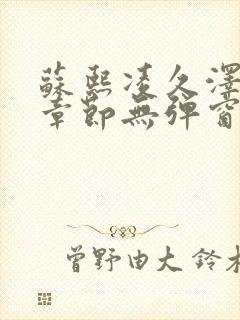 蘇熙凌久澤
章節無彈窗
曾野由大 鈴木